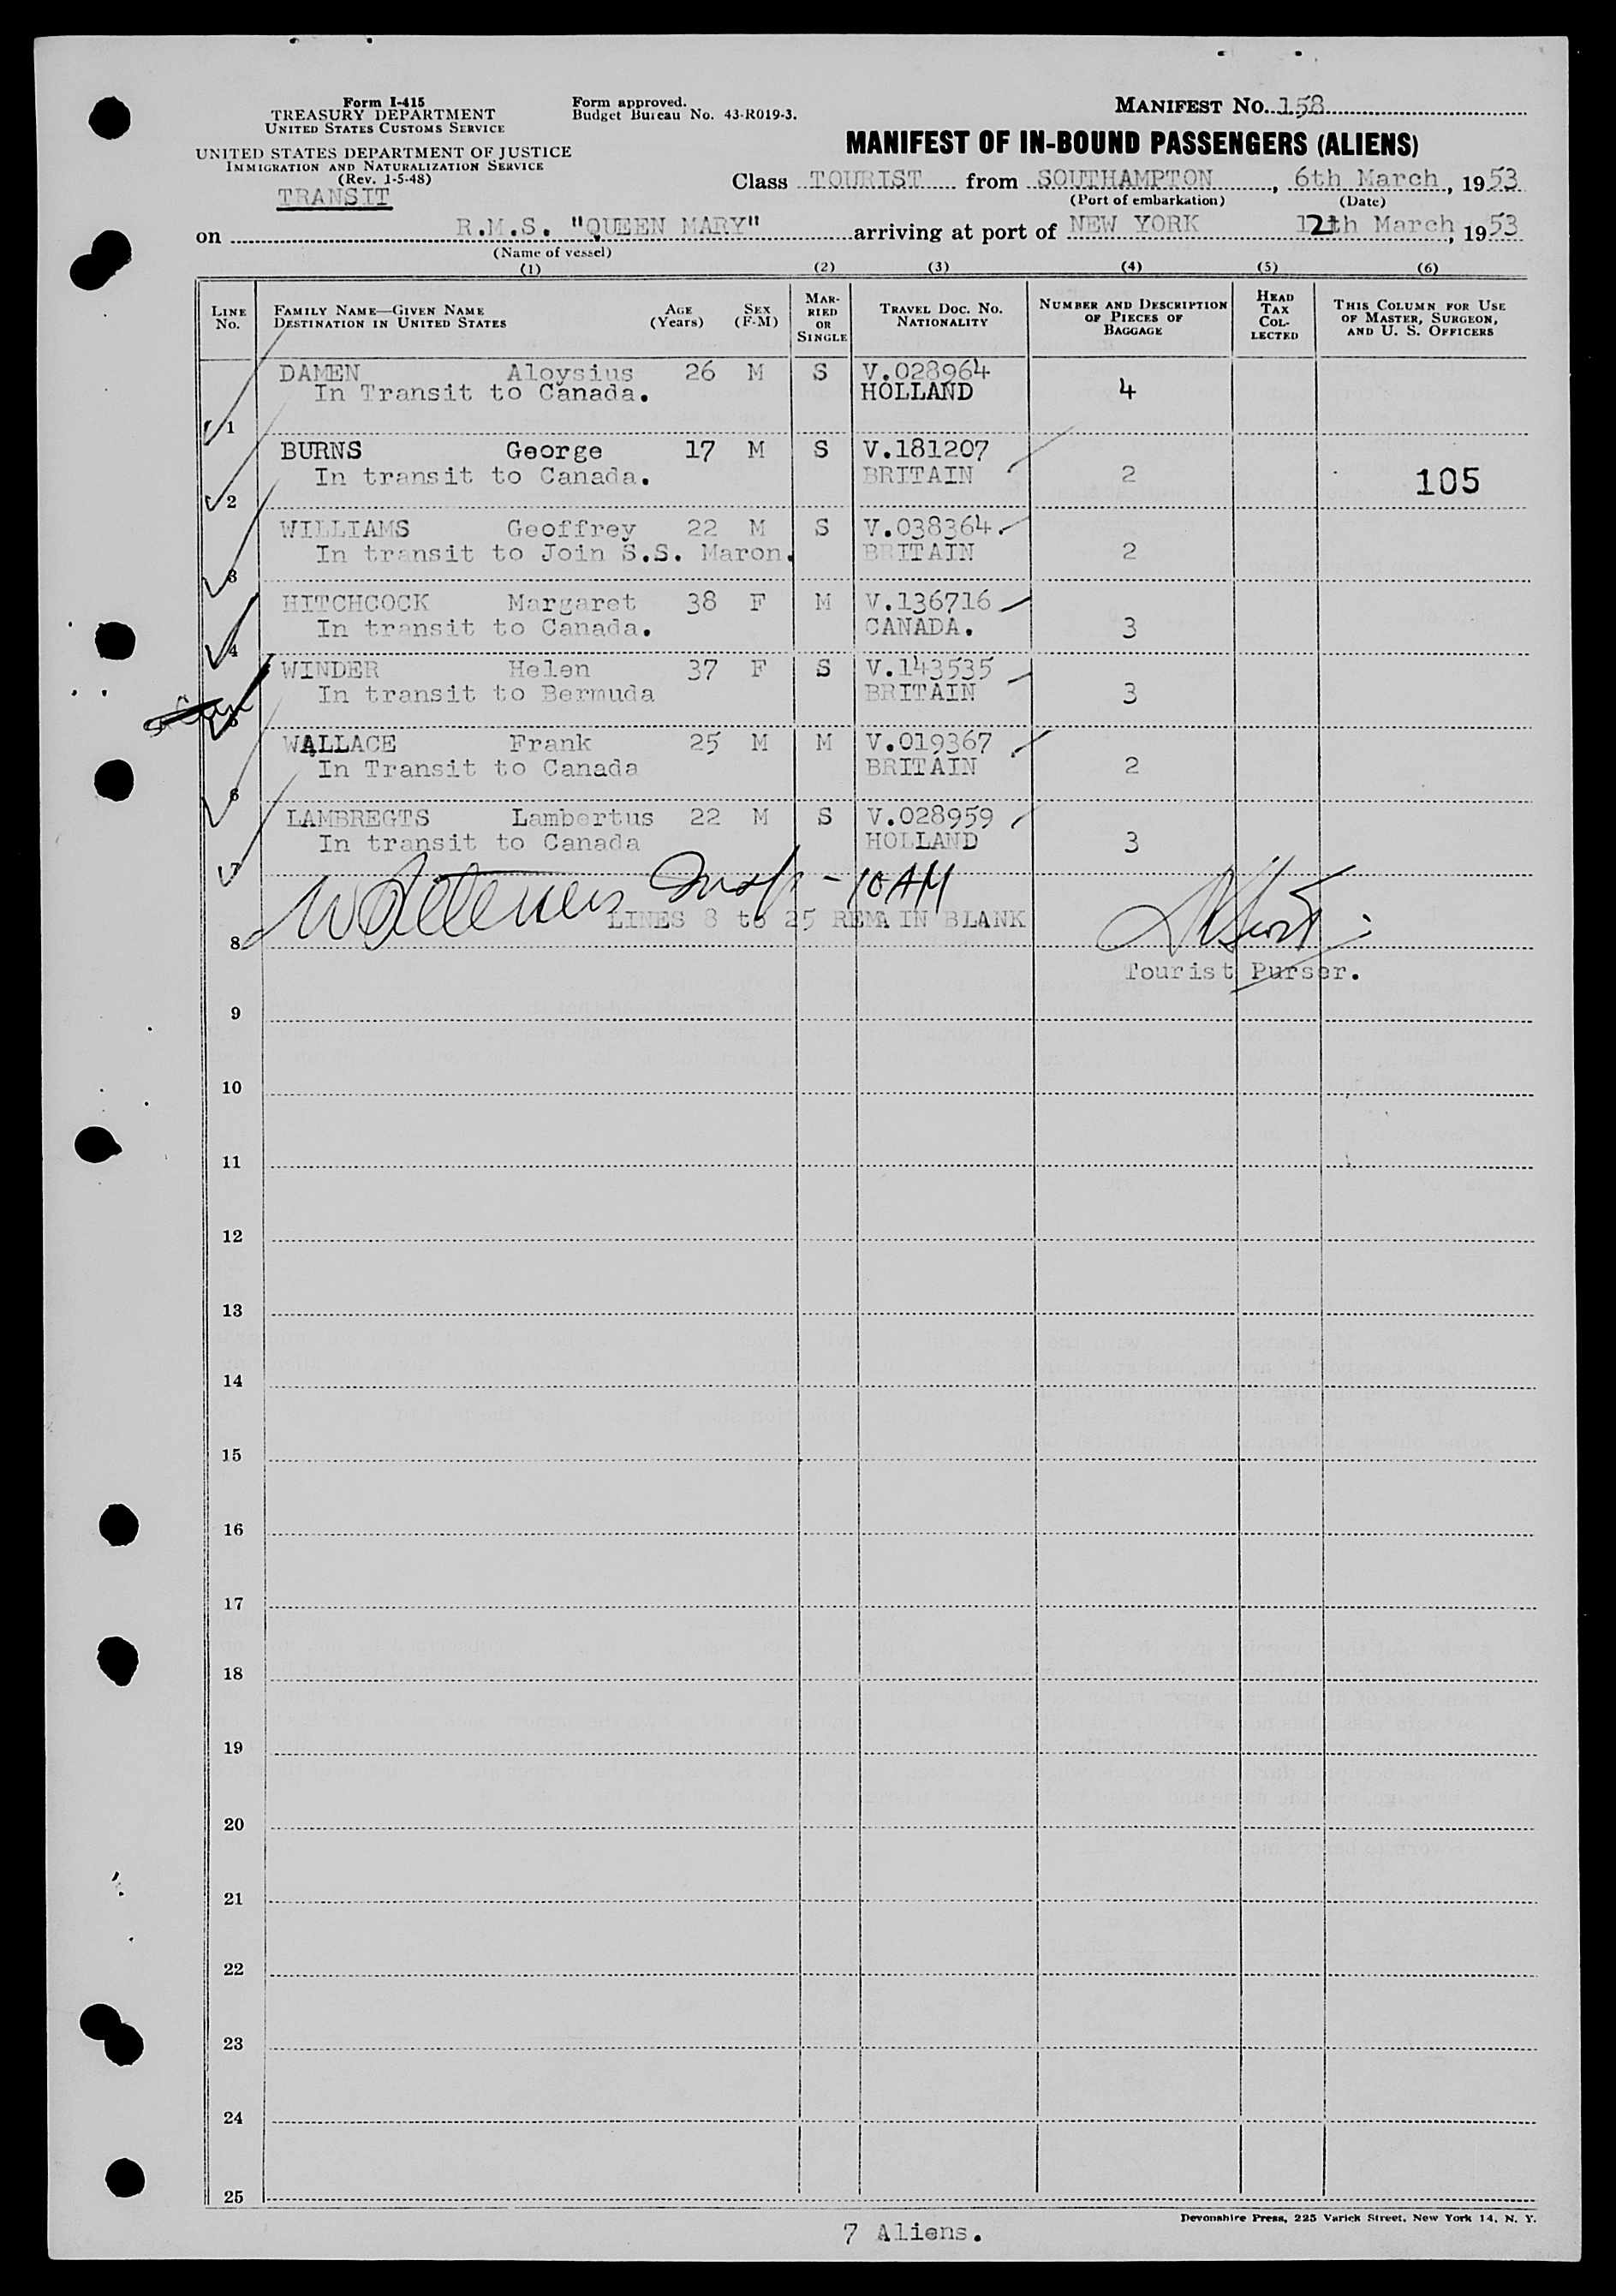 Form I-415
TREASURY DEPARTMENT
UNITED STATES CUSTOMS SERVICE
UNITED STATES DEPARTMENT OF JUSTICE
IMMIGRATION AND NATURALIZATION SERVICE
(Rev. 1-5-48)
TRANSIT
Form approved.
Budget Bureau No. 43-R019-3.
MANIFEST NO. 158
MANIFEST OF IN-BOUND PASSENGERS (ALIENS)
Class TOURIST from SOUTHAMPTON, 6th March, 1953
(Port of embarkation) (Date)
on R.M.S. "QUEEN MARY" arriving at port of NEW YORK 12th March, 1953
(Name of vessel)
(1) (2) (3) (4) (5) (6)
LINE NO. FAMILY NAME—GIVEN NAME DESTINATION IN UNITED STATES AGE (Years) SEX (F-M) MARRIED OR SINGLE TRAVEL DOC. NO. NATIONALITY NUMBER AND DESCRIPTION OF PIECES OF BAGGAGE HEAD TAX COLLECTED THIS COLUMN FOR USE OF MASTER, SURGEON, AND U. S. OFFICERS
DAMEN Aloysius 26 M S V.028964
In Transit to Canada. HOLLAND 4
1
BURNS George 17 M S V.181207
In transit to Canada. BRITAIN 2 105
2
WILLIAMS Geoffrey 22 M S V.038364.
In transit to Join S.S. Maron. BRITAIN 2
3
HITCHCOCK Margaret 38 F M V.136716
In transit to Canada. CANADA. 3
4
WINDER Helen 37 F S V.143535
In transit to Bermuda BRITAIN 3
5
WALLACE Frank 25 M M V.019367
In Transit to Canada BRITAIN 2
6
LAMBREGTS Lambertus 22 M S V.028959
In transit to Canada HOLLAND 3
7
Insp - 10 AM
LINES 8 to 25 REMAIN BLANK
8
Tourist Purser.
9
10
11
12
13
14
15
16
17
18
19
20
21
22
23
24
25
Devonshire Press, 225 Varick Street, New York 14, N. Y.
7 Aliens.